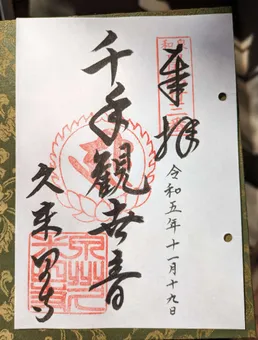 奉拝
令和五年十一月十九日
千手觀世音
久米田寺